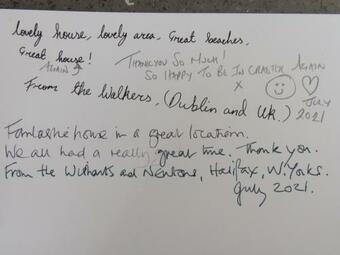 Lovely house, lovely area, Great beaches,
Great house!
AGAIN
THANK YOU SO MUCH!
SO HAPPY TO BE IN CRASTER AGAIN
x
From the Walkers, (Dublin and UK.)
JULY
2021
Fantastic house in a great location.
We all had a really great time. Thank you.
From the and Newtons, Halifax, W. Yorks.
July 2021.